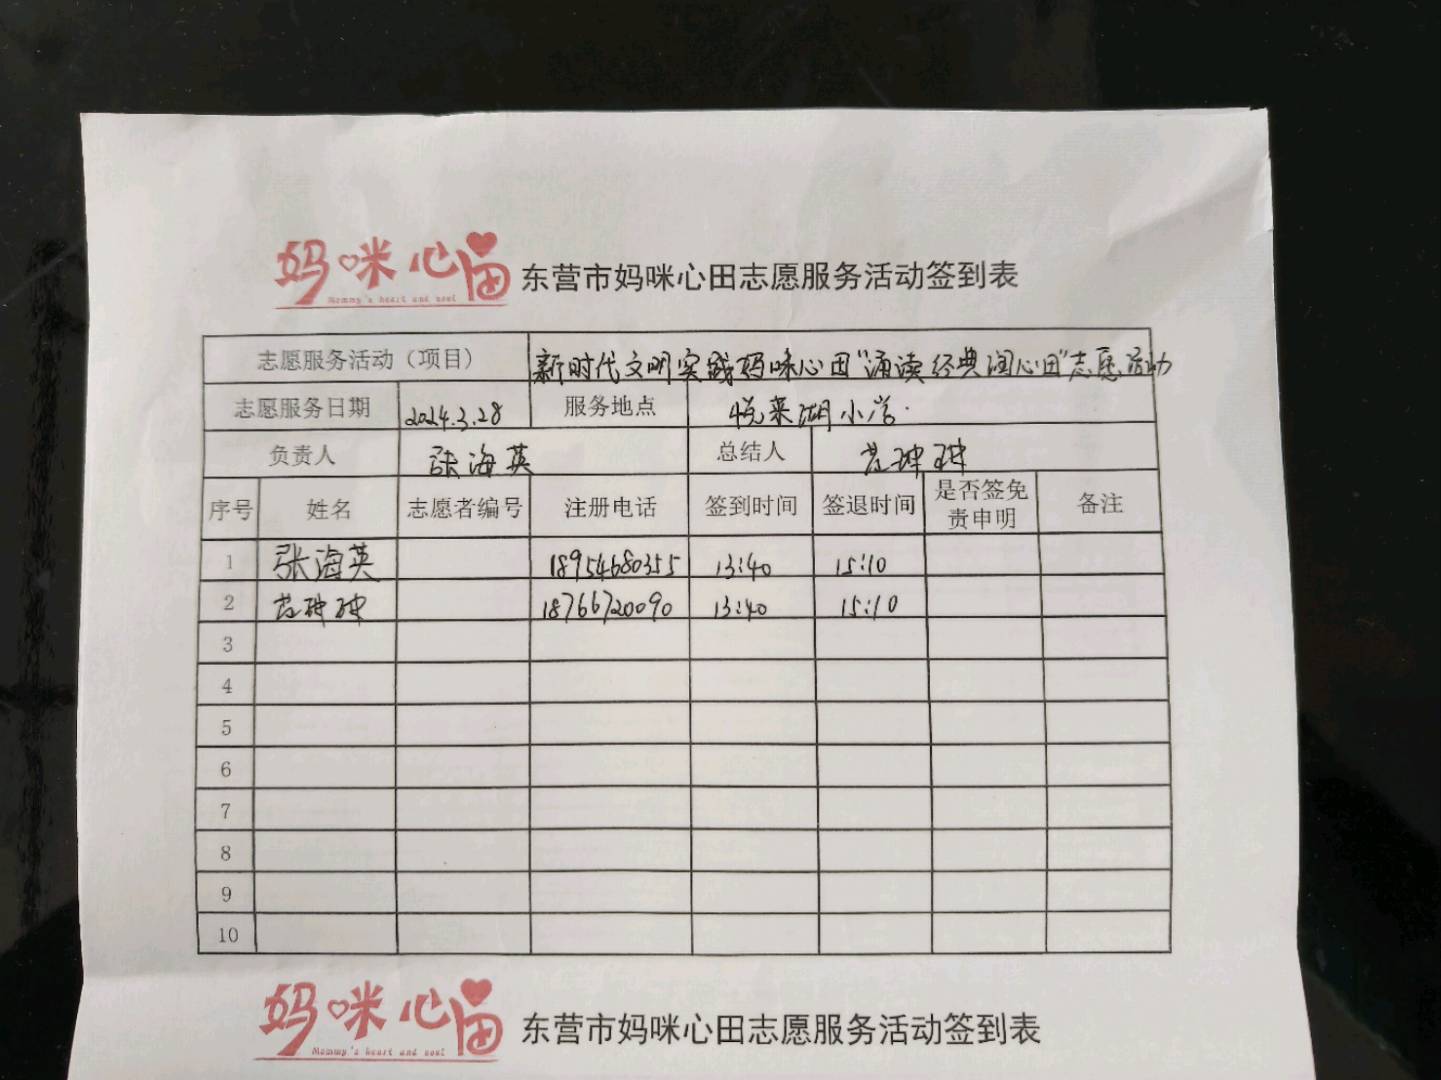 妈咪心田 东营市妈咪心田志愿服务活动签到表
Mommy's heart and soul
志愿服务活动（项目） 新时代文明实践妈咪心田“诵读经典润心田”志愿活动
志愿服务日期 2024.3.28 服务地点 悦来湖小学.
负责人 张海英 总结人
序号 姓名 志愿者编号 注册电话 签到时间 签退时间 是否签免责申明 备注
1 张海英 18954680355 13:40 15:10
2 18766720090 13:40 15:10
3
4
5
6
7
8
9
10
妈咪心田 东营市妈咪心田志愿服务活动签到表
Mommy's heart and soul